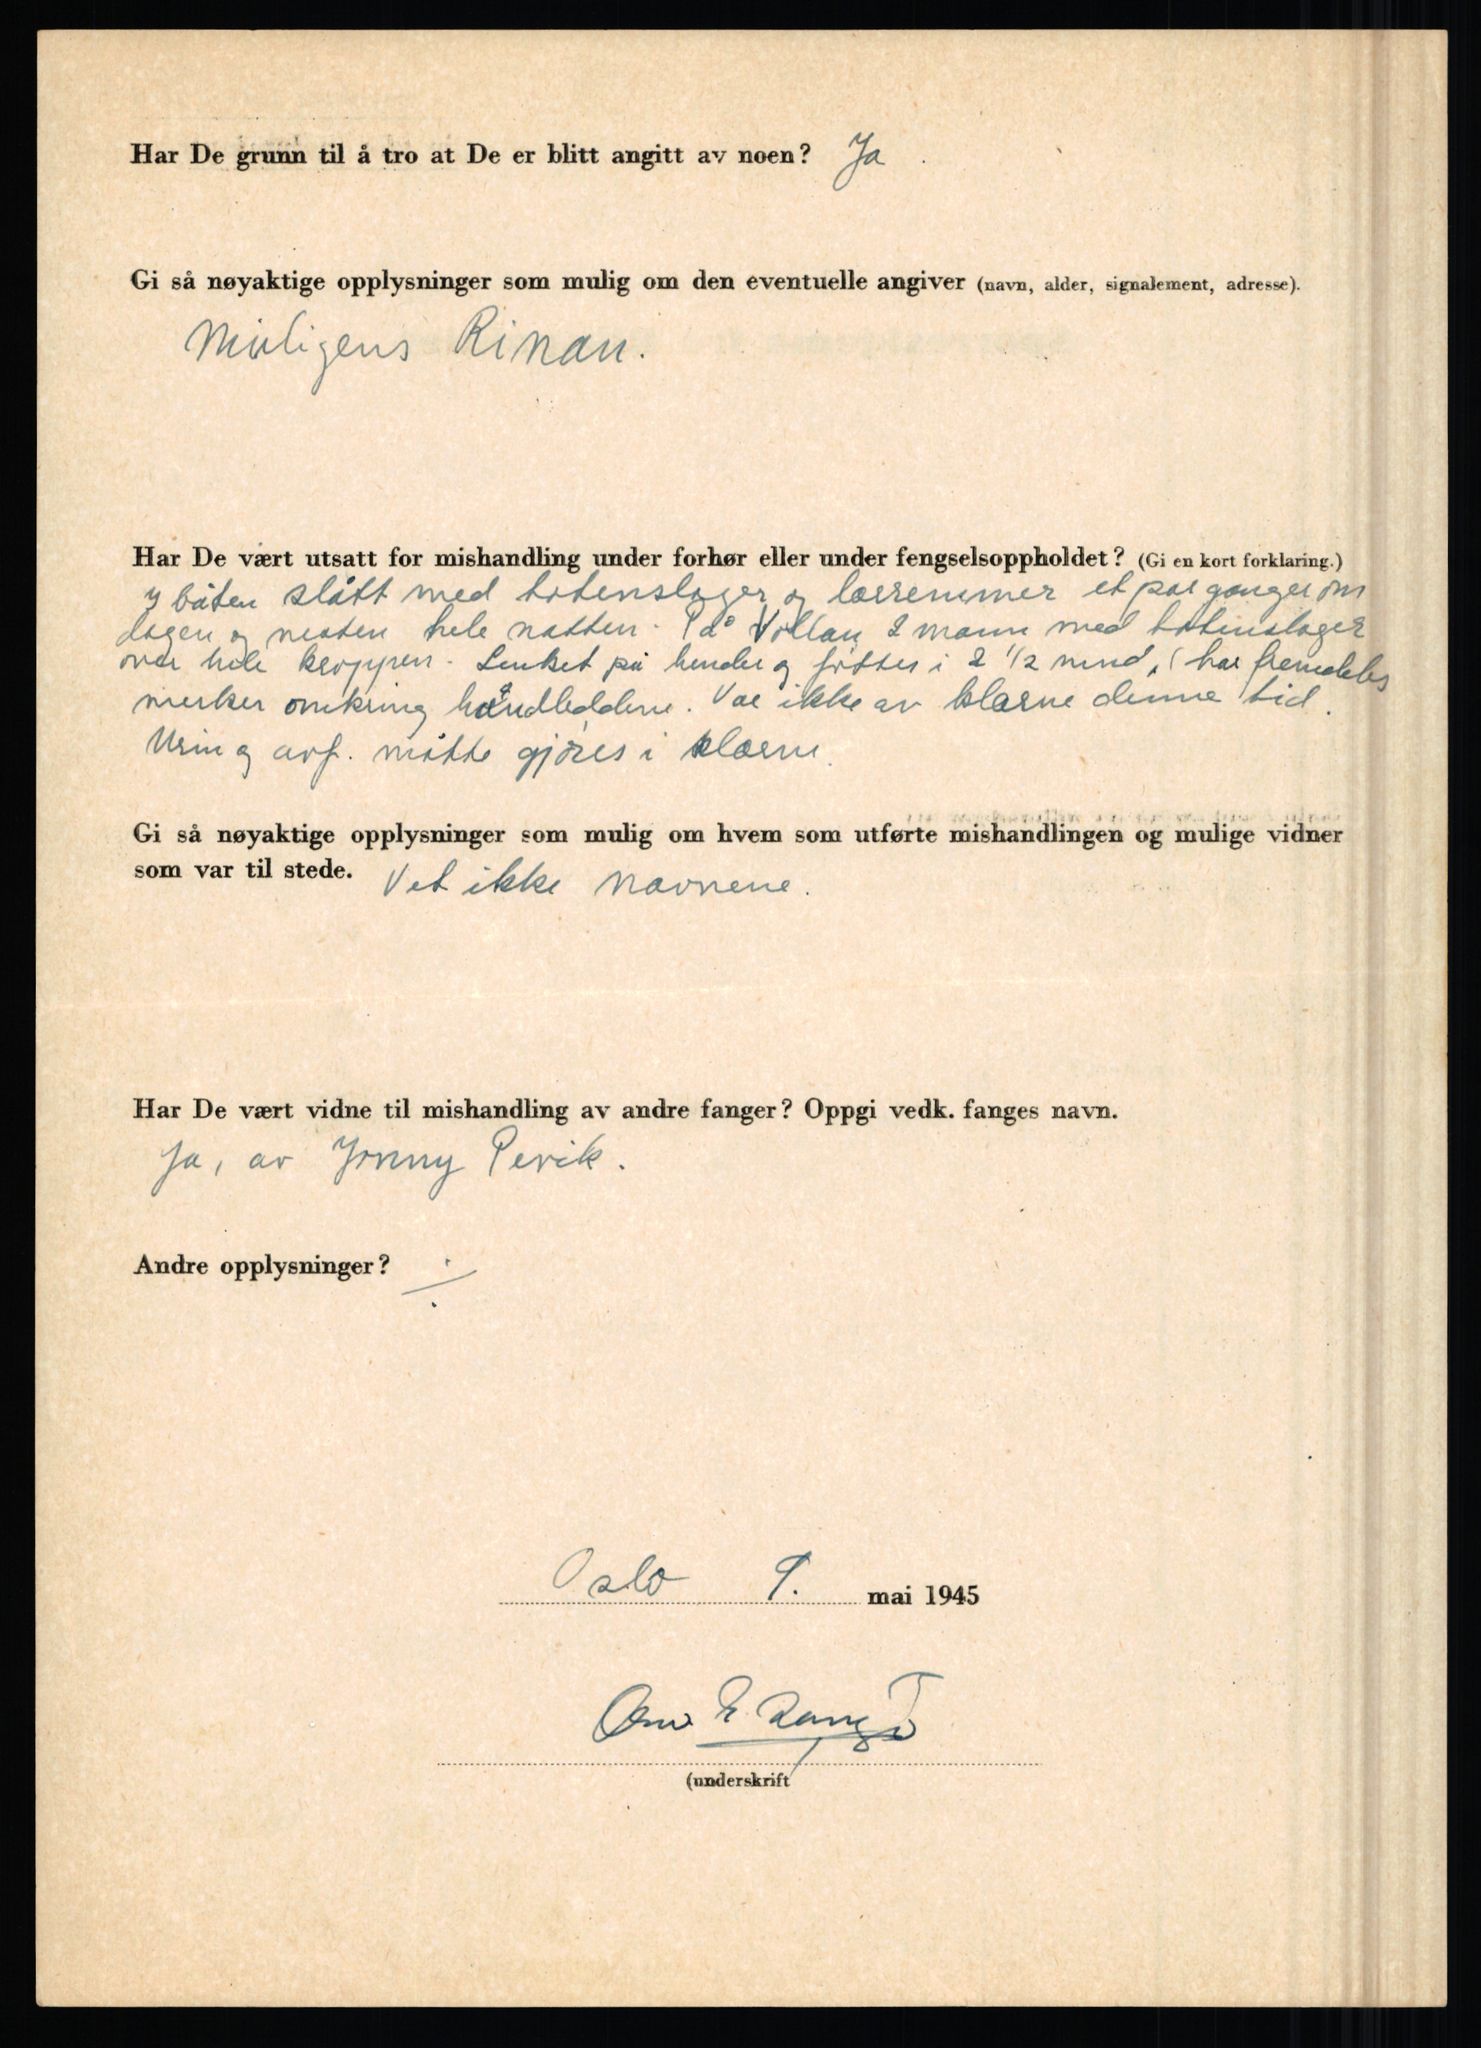 Har De grunn til å tro at De er blitt angitt av noen? Ja
Gi så nøyaktige opplysninger som mulig om den eventuelle angiver (navn, alder, signalement, adresse).
Muligens Rinan.
Har De vært utsatt for mishandling under forhør eller under fengselsoppholdet? (Gi en kort forklaring.)
I båten slått med totenslager og lærremmer et par ganger om
dagen og nesten hele natten. På Vollan 2 mann med totenslager
over hele kroppen. Lenket på hender og føtter i 2 1/2 mnd, (har fremdeles
merker omkring håndleddene. Var ikke av klærne denne tid.
Urin og avf. måtte gjøres i klærne.
Gi så nøyaktige opplysninger som mulig om hvem som utførte mishandlingen og mulige vidner
som var til stede. Vet ikke navnene.
Har De vært vidne til mishandling av andre fanger? Oppgi vedk. fanges navn.
Ja, av Jonny Pevik.
Andre opplysninger? ÷
Oslo 9. mai 1945
(underskrift